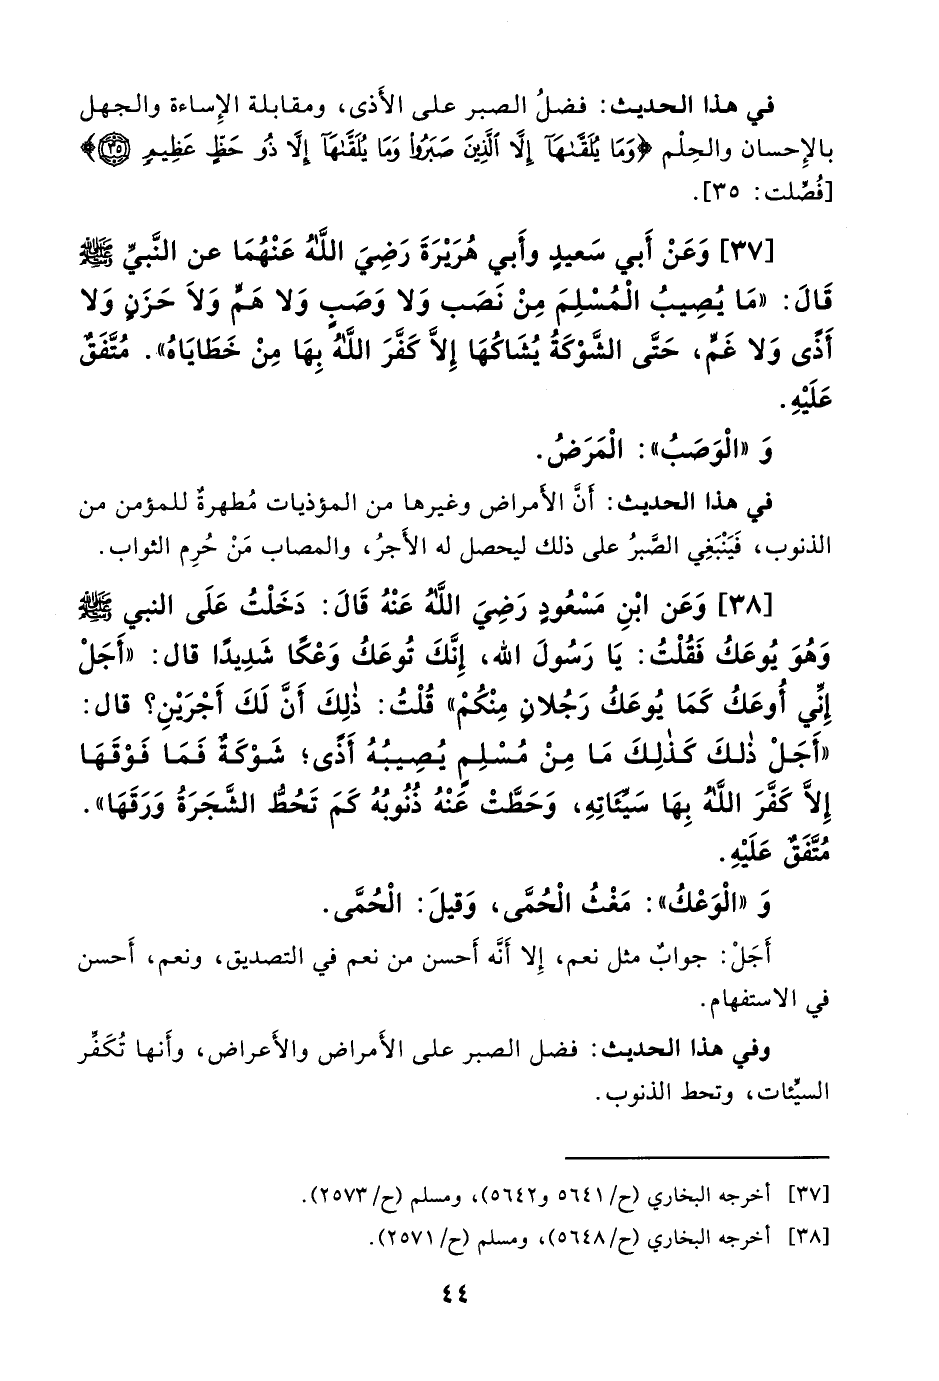 في هذا الحديث: فضلُ الصبر على الأذى، ومقابلة الإساءة والجهل
بالإحسان والحِلْم ﴿وَمَا يُلَقَّىٰهَآ إِلَّا ٱلَّذِينَ صَبَرُوا۟ وَمَا يُلَقَّىٰهَآ إِلَّا ذُو حَظٍّ عَظِيمٍ ۝٣٥﴾
[فُصِّلت: ٣٥].
[٣٧] وَعَنْ أَبي سَعيدٍ وأَبي هُرَيْرَةَ رَضِيَ اللَّهُ عَنْهُمَا عن النَّبيِّ ﷺ
قَالَ: «مَا يُصِيبُ الْمُسْلِمَ مِنْ نَصَبٍ وَلا وَصَبٍ وَلا هَمٍّ وَلاَ حَزَنٍ وَلا
أَذًى وَلا غَمٍّ، حَتَّى الشَّوْكَةُ يُشَاكُهَا إِلاَّ كَفَّرَ اللَّهُ بِهَا مِنْ خَطَايَاهُ». مُتَّفَقٌ
عَلَيْهِ.
وَ «الْوَصَبُ»: الْمَرَضُ.
في هذا الحديث: أَنَّ الأمراض وغيرها من المؤذيات مُطهرةٌ للمؤمن من
الذنوب، فَيَنْبَغِي الصَّبرُ على ذلك ليحصل له الأجرُ، والمصاب مَنْ حُرِم الثواب.
[٣٨] وَعَن ابْنِ مَسْعُودٍ رَضِيَ اللَّهُ عَنْهُ قَالَ: دَخَلْتُ عَلَى النبي ﷺ
وَهُوَ يُوعَكُ فَقُلْتُ: يَا رَسُولَ الله، إِنَّكَ تُوعَكُ وَعْكًا شَدِيدًا قال: «أَجَلْ
إِنِّي أُوعَكُ كَمَا يُوعَكُ رَجُلانِ مِنْكُمْ» قُلْتُ: ذٰلِكَ أَنَّ لَكَ أَجْرَيْنِ؟ قال:
«أَجَلْ ذٰلكَ كَذٰلِكَ مَا مِنْ مُسْلِمٍ يُصِيبُهُ أَذًى؛ شَوْكَةٌ فَمَا فَوْقَهَا
إِلاَّ كَفَّرَ اللَّهُ بِهَا سَيِّئَاتِهِ، وَحَطَّتْ عَنْهُ ذُنُوبُهُ كَمَ تَحُطُّ الشَّجَرَةُ وَرَقَهَا».
مُتَّفَقٌ عَلَيْهِ.
وَ «الْوَعْكُ»: مَغْثُ الْحُمَّى، وَقيلَ: الْحُمَّى.
أَجَلْ: جوابٌ مثل نعم، إِلا أَنَّه أَحسن من نعم في التصديق، ونعم، أَحسن
في الاستفهام.
وفي هذا الحديث: فضل الصبر على الأمراض والأعراض، وأَنها تُكَفِّر
السيِّئات، وتحط الذنوب.
[٣٧] أخرجه البخاري (ح/ ٥٦٤١ و٥٦٤٢)، ومسلم (ح/ ٢٥٧٣).
[٣٨] أخرجه البخاري (ح/ ٥٦٤٨)، ومسلم (ح/ ٢٥٧١).
٤٤